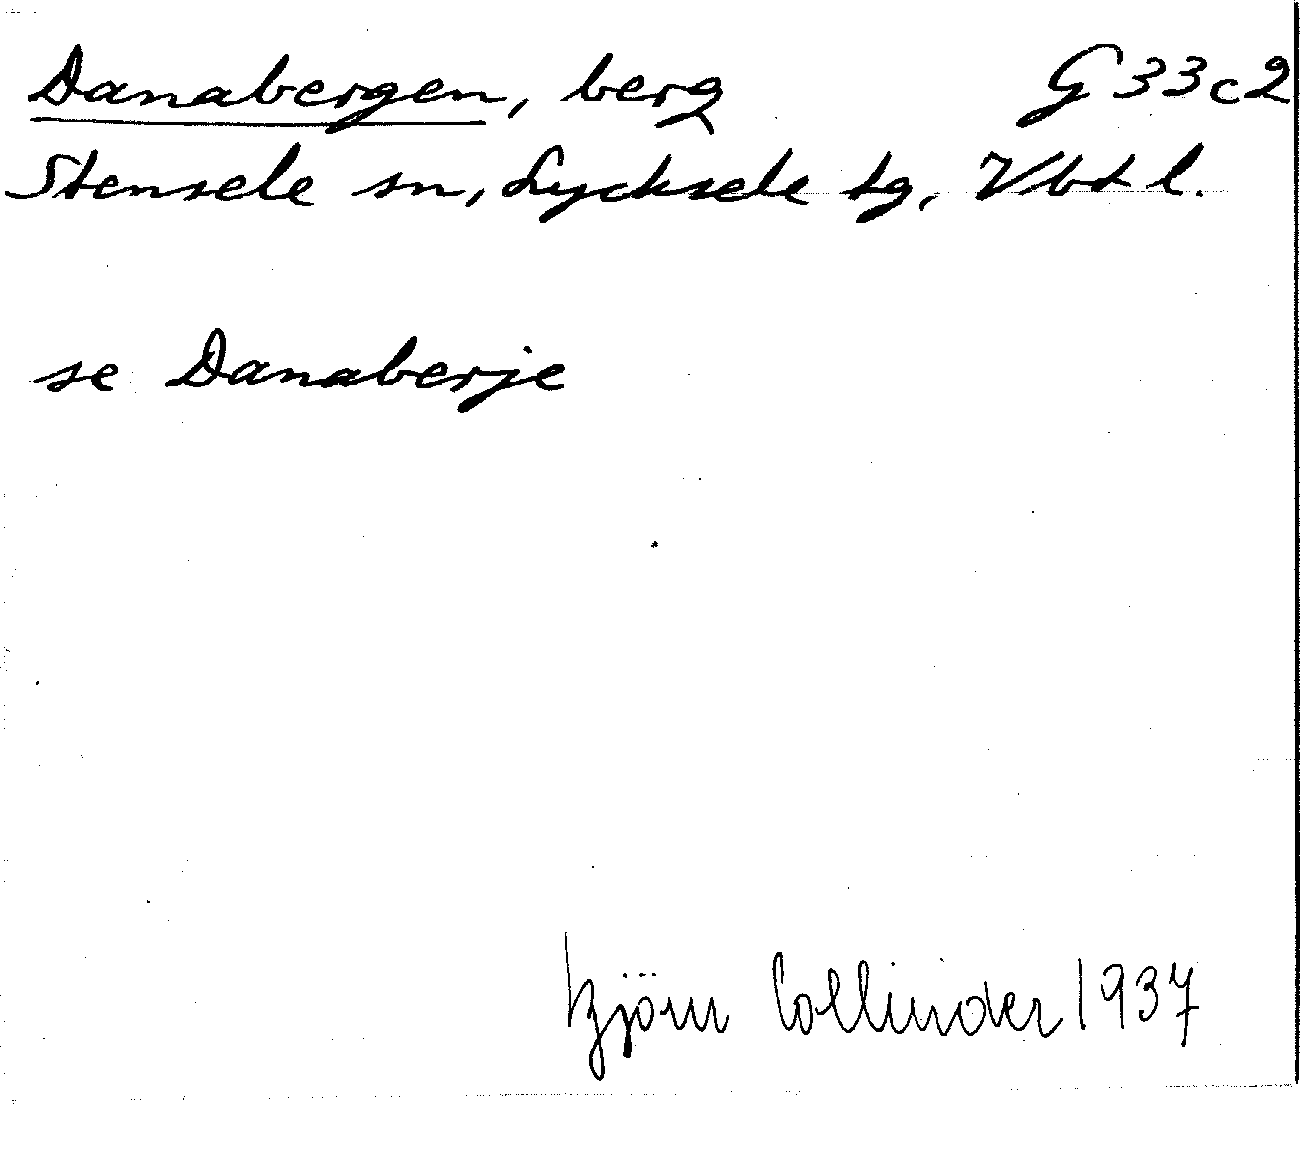 Danabergen, berg G 33c2
Stensele sn, Lycksele tg, Vbt l.
se Danaberje
Björn Collinder 1937